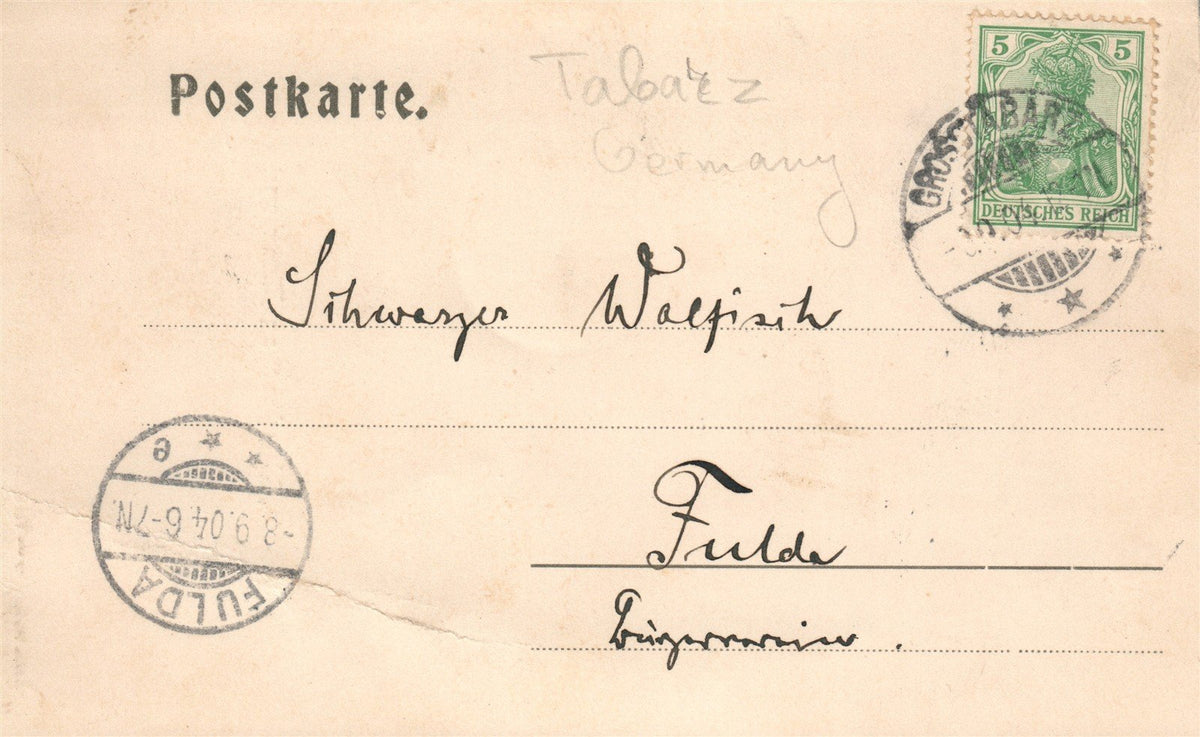 Postkarte.
Tabarz
Germany
5 5
DEUTSCHES REICH
GROSSTABARZ
Schwarzer Walfisch
Fulda
Bürgerverein.
e
-8.9.04.6-7N.
FULDA